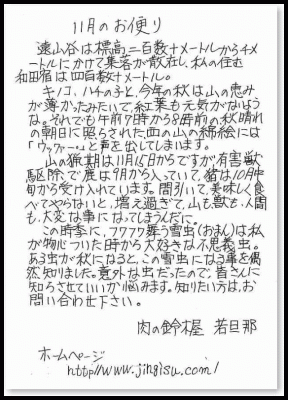 11月のお便り
遠山谷は標高二百数十メートルから千メ
ートルにかけて集落が散在し、私の住む
和田宿は四百数十メートル。
キノコ、ハチの子と、今年の秋は山の恵み
が薄かったみたいで、紅葉も元気がないよう
な。それでも午前7時から8時前の、秋晴れ
の朝日に照らされた西の山の錦絵には
「ウッファー。」と声を出してしまいます。
山の猟期は11月15日からですが、有害獣
駆除で鹿は9月から入っていて、猪は10月中
旬から受け入れています。間引いて、美味しく食
べてやらないと、増え過ぎて、山も獣も、人間
も、大変な事になってしまうんだに。
この時季に、フワフワ舞う雪虫(おまん)は私
が物心ついた時から大好きな不思議虫。
ある虫が秋になると、この雪虫になる事を偶
然知りました。意外な虫だったので、皆さんに
知らさせていいか悩みます。知りたい方は、お
問い合わせ下さい。
肉の鈴木屋 若旦那
ホームページ
http//www.jingisu.com/